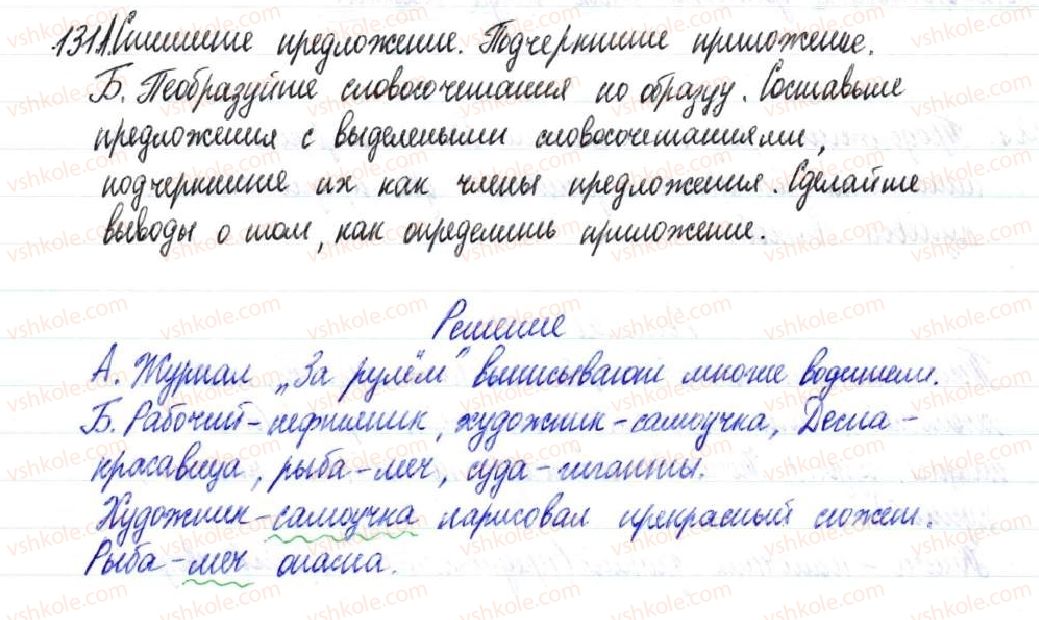 131А. Спишите предложение. Подчеркните приложение.
Б. Пеобразуйте словосочетания по образцу. Составьте
предложения с выделеными словосочетаниями,
подчеркните их как члены предложения. Сделайте
выводы о том, как определить приложение.
Решение
А. Журнал „За рулём" выписывают многие водители.
Б. Рабочий-нефтяник, художник-самоучка, Десна-
красавица, рыба-меч, суда-гиганты.
Художник-самоучка нарисовал прекрасный сюжет.
Рыба-меч опасна.